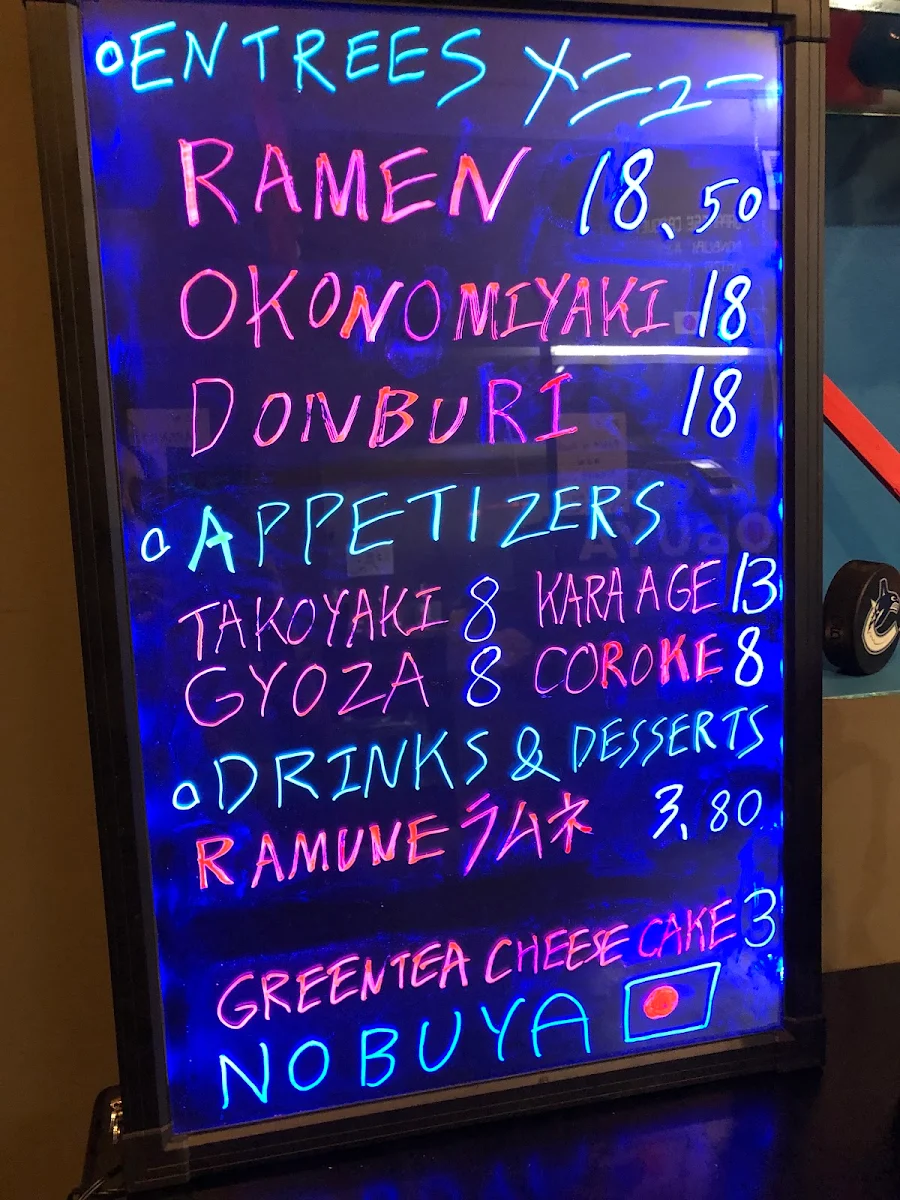 ENTREES メニュー
RAMEN 18.50
OKONOMIYAKI 18
DONBURI 18
APPETIZERS
TAKOYAKI 8 KARAAGE 13
GYOZA 8 COROKE 8
DRINKS & DESSERTS
RAMUNE ラムネ 3.80
GREENTEA CHEESE CAKE 3
NOBUYA